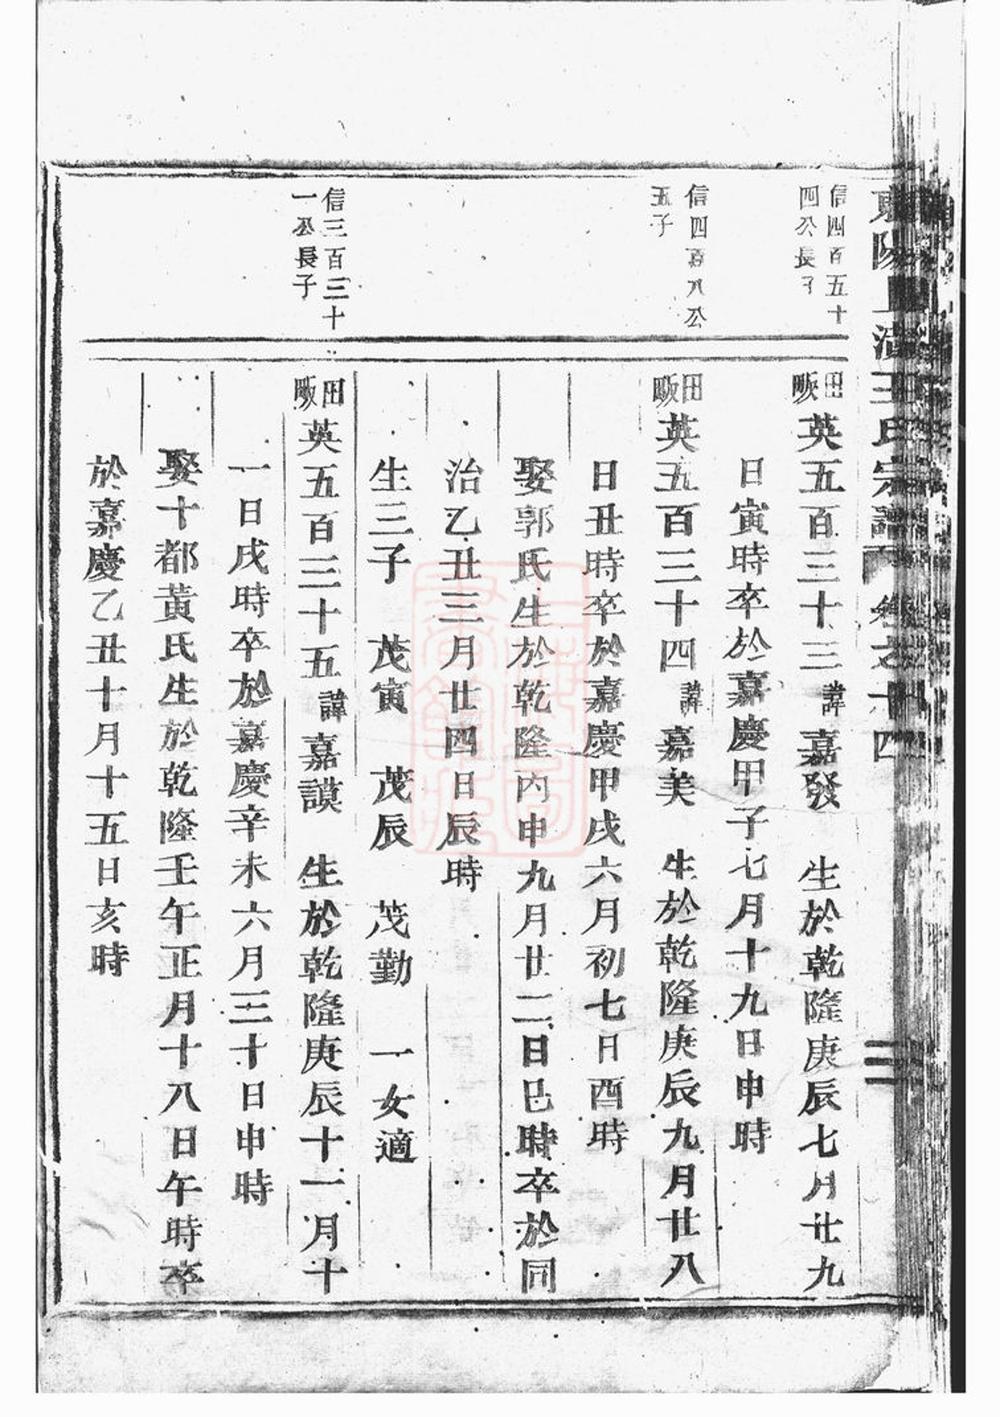 東陽上湖王氏宗譜 卷之十四
信四百五十
四公長子
田畈
英五百三十三諱嘉發 生於乾隆庚辰七月廿九
日寅時卒於嘉慶甲子七月十九日申時
信四百八公
五子
田畈
英五百三十四諱嘉美 生於乾隆庚辰九月廿八
日丑時卒於嘉慶甲戌六月初七日酉時
娶郭氏生於乾隆丙申九月廿二日巳時卒於同
治乙丑三月廿四日辰時
生三子 茂寅 茂辰 茂勤 一女適
信三百三十
一公長子
田畈
英五百三十五諱嘉謨 生於乾隆庚辰十一月十
一日戌時卒於嘉慶辛未六月三十日申時
娶十都黃氏生於乾隆壬午正月十八日午時卒
於嘉慶乙丑十月十五日亥時